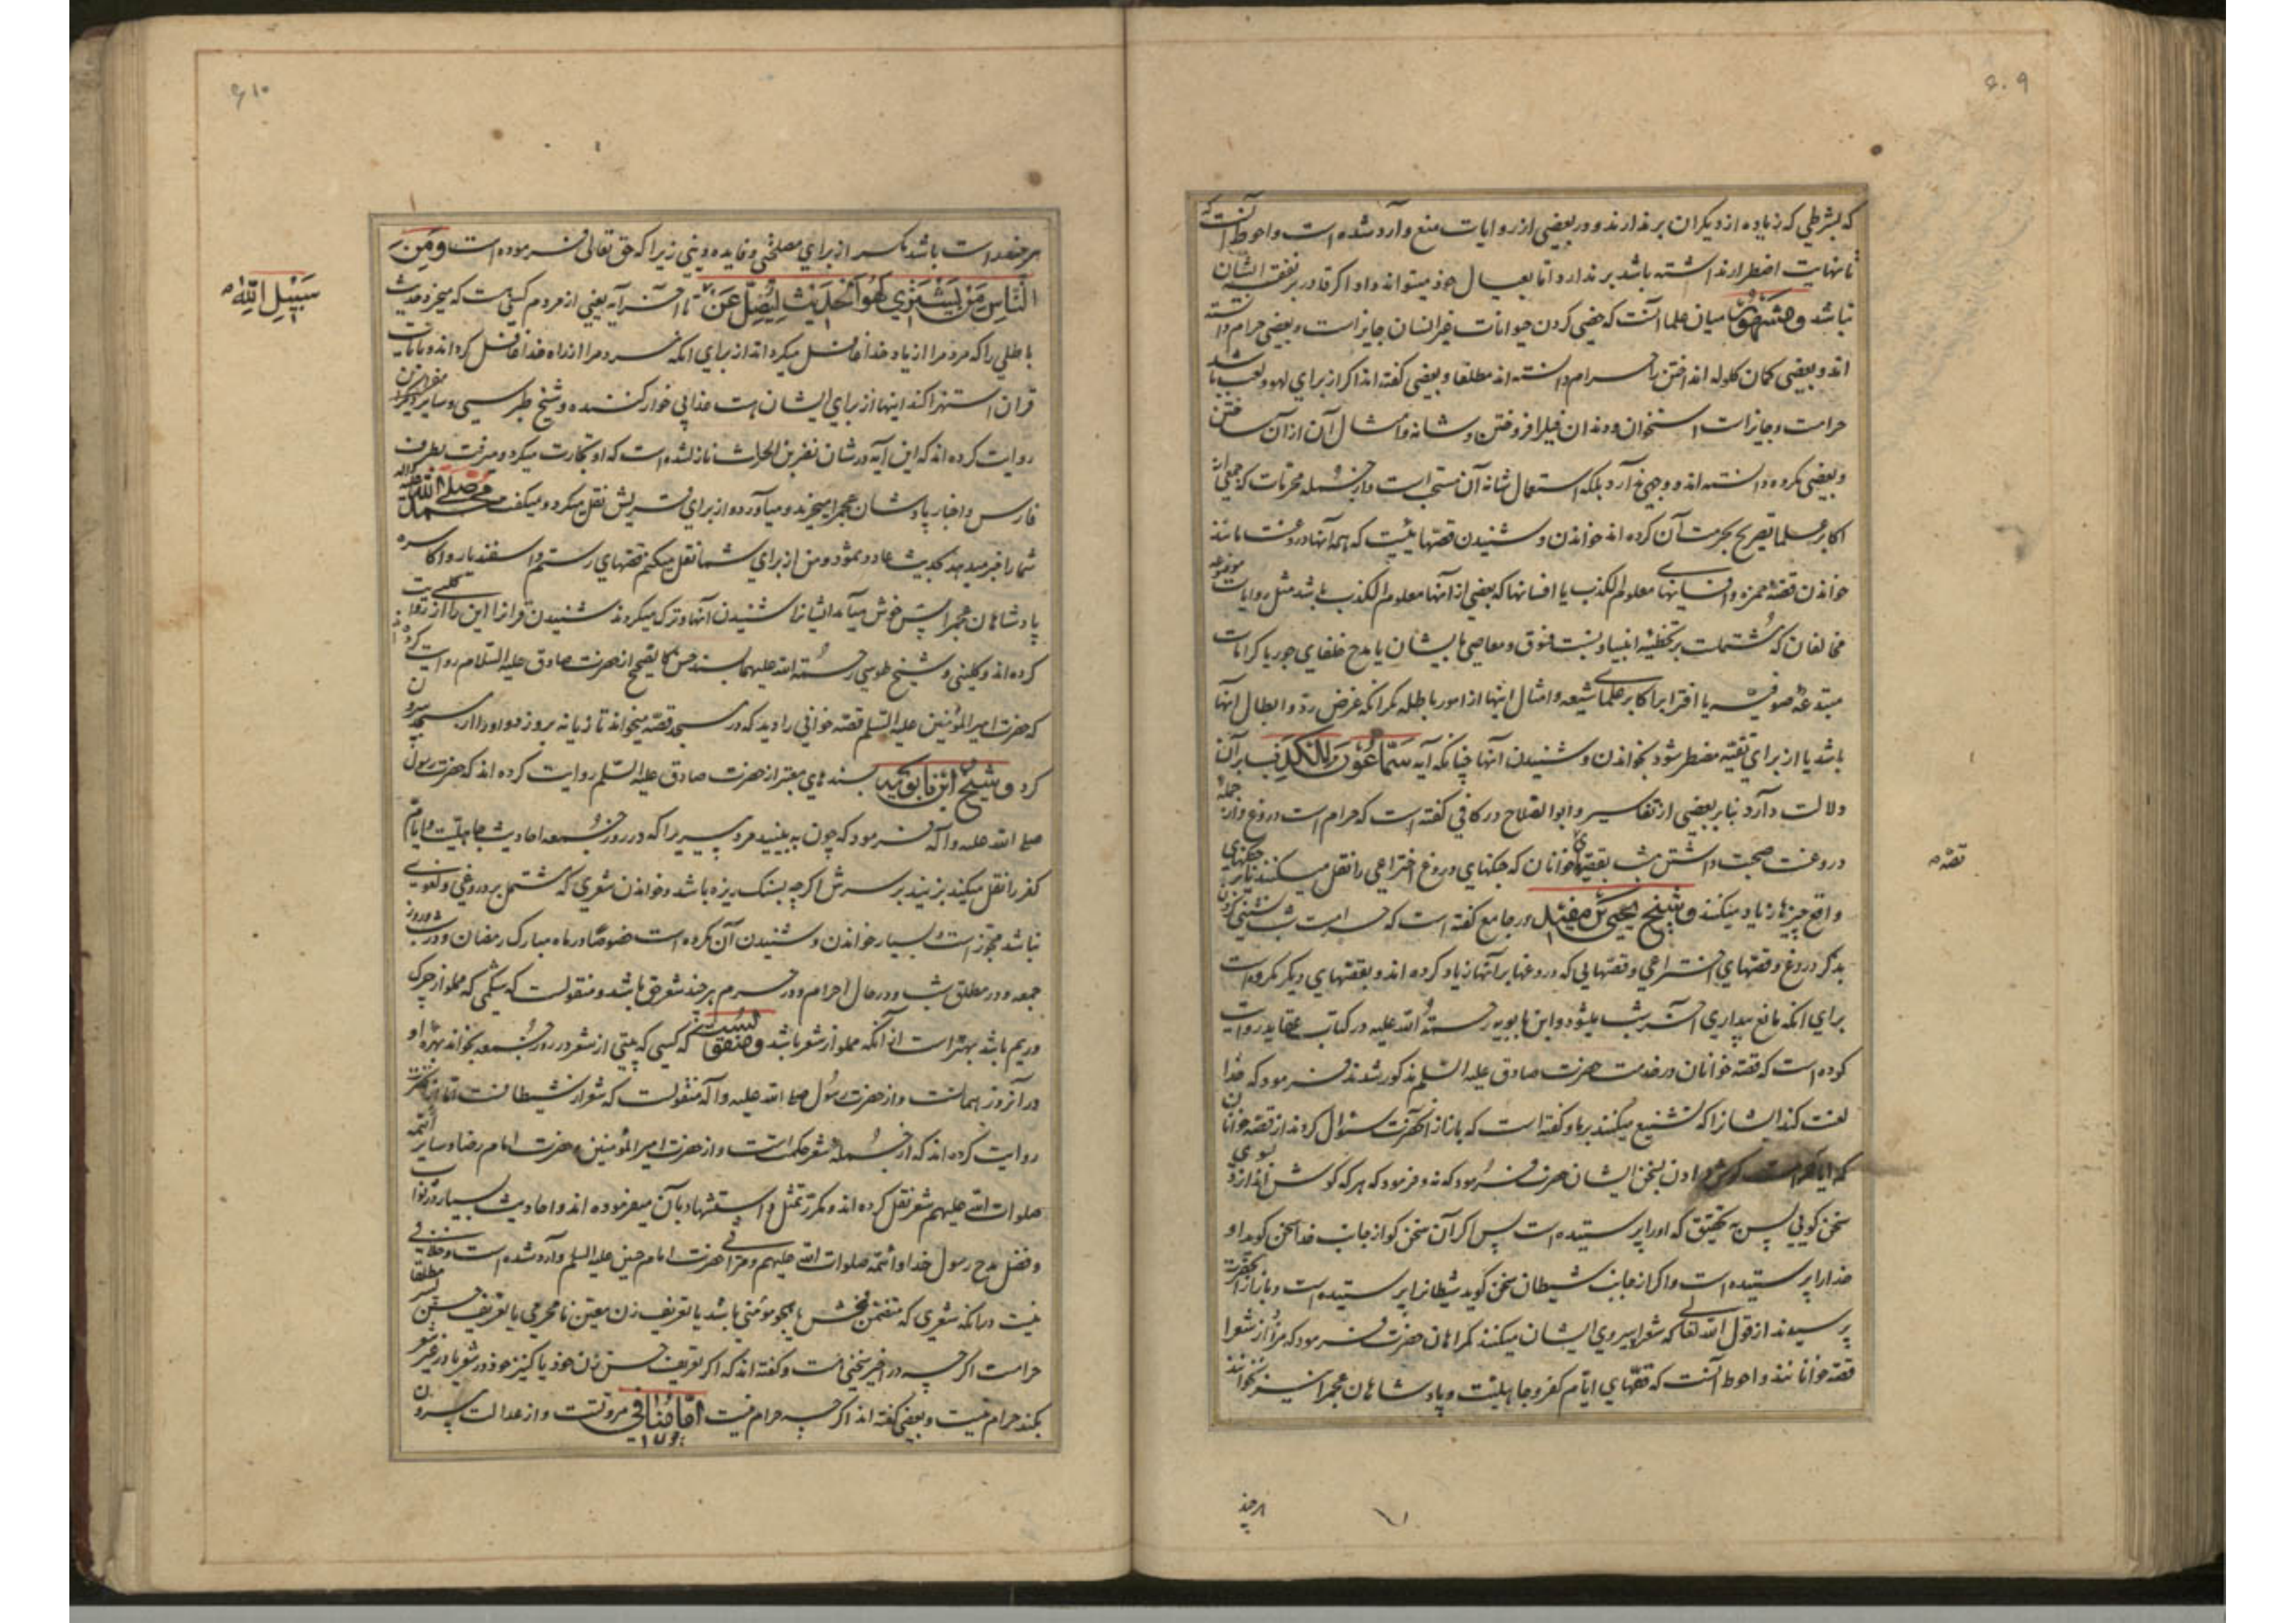 ۶۰۹
که بشرطی که زیاده از دیکران برندارند و در بعضی از روایات منع وارد شده است واحوط آنست که
تا نهایت اضطرار نداشته باشد برندارد اما بعیال خود میتواند داد اکر قادر بر نفقه ایشان
نباشد و مشهور میان علما آنست که خصی کردن حیوانات غیر انسان جایز است و بعضی حرام دانسته
اند و بعضی کمان کلوله انداختن را حرام دانسته اند مطلقا و بعضی کفته اند اکر از برای لهو و لعب باشد
حرامست و جایز است استخوان و دندان فیل را فروختن و شانه و امثال آن از آن ساختن
و بعضی مکروه دانسته اند و وجهی ندارد بلکه استعمال شانه آن مستحب است و از جمله محرمات که جمعی از
اکابر علما تصریح بحرمت آن کرده اند خواندن و شنیدن قصهائیست که همه آنها دروغست مانند
خواندن قصه حمزه و افسانهای معلوم الکذب یا افسانها که بعضی از آنها معلوم الکذب باشد مثل روایات موضوعه
مخالفان که مشتملست بر تخطئه انبیا و نسبت فسوق و معاصی بایشان یا مدح خلفای جور یا کرامات
مبتدعه صوفیه یا افترا بر اکابر علمای شیعه و امثال اینها از امور باطله مکر آنکه غرض رد و ابطال اینها
باشد یا از برای تقیه مضطر شود بخواندن و شنیدن آنها چنانکه آیه سَمّاعُونَ لِلْکَذِبِ بر آن
دلالت دارد بنا بر بعضی از تفاسیر و ابوالصلاح در کافی کفته است که حرام است دروغ و از جمله
دروغست صحبت داشتن شب بقصهای خوانان که جنکهای دروغ اختراعی را نقل میکنند یا بر جنکهای
قصه
واقع چیزها زیاد میکنند و شیخ یحیی بن سعید در جامع کفته است که حرامست شب نشینی کردن
بذکر دروغ و قصهای اختراعی و قصهایی که دروغها بر آنها زیاد کرده اند و بقصهای دیکر مکروهست
برای انکه مانع بیداری آخر شب میشود و ابن بابویه رحمة الله علیه در کتاب عقاید روایت
کرده است که قصه خوانان در خدمت حضرت صادق علیه السلم مذکور شدند فرمود که خدا
لعنت کند ایشانرا که تشنیع میکنند بر ما و کفته است که باز از آنحضرت سئوال کردند از قصه خوانان
که ایا حلال است کوش دادن بسخن ایشان حضرت فرمود که نه و فرمود که هر که کوش اندازد بسوی
سخن کویی پس بتحقیق که او را پرستیده است پس اکر آن سخن کو از جانب خدا سخن کوید او
خدا را پرستیده است و اکر از جانب شیطان سخن کوید شیطانرا پرستیده است و باز از آنحضرت
پرسیدند از قول الله تعالی که شعرا پیروی ایشان میکنند کمراهان حضرت فرمود که مراد از شعرا
قصه خوانانند و احوط آنست که قصهای ایام کفر و جاهلیت و پادشاهان عجم را نیز نخوانند
هر چند
۶۱۰
هر چند راست باشد مکر از برای مصلحتی و فایده دینی زیرا که حق تعالی فرموده است وَمِنَ
النّاسِ مَنْ یَشْتَری لَهْوَ الْحَدیثِ لِیُضِلَّ عَنْ تا آخر آیه یعنی از مردم کسی هست که میخرد حدیث
سَبیلِ اللّٰهِ
باطلی را که مردم را از یاد خدا غافل میکرداند از برای انکه مردم را از راه خدا غافل کرداند و بآیات
قران استهزا کند اینها از برای ایشان هست عذابی خوار کننده و شیخ طبرسی و سایر مفسران
روایت کرده اند که این آیه در شان نضر بن الحارث نازل شده است که او تجارت میکرد و میرفت بطرف
فارس و اخبار پادشاهان عجم را میخرید و میآورد و از برای قریش نقل میکرد و میکفت محمد صلی الله علیه واله
شما را خبر میدهد بحدیث عاد و ثمود و من از برای شما نقل میکنم قصهای رستم و اسفندیار و اکاسره
پادشاهان عجم را پس خوش میآمد ایشانرا شنیدن آنها و ترک میکردند شنیدن قرانرا این را از کلبی روایت
کرده اند و کلینی و شیخ طوسی رحمة الله علیهما بسند حسن کالصحیح از حضرت صادق علیه السلام روایت کرده اند
که حضرت امیرالمؤمنین علیه السلم قصه خوانی را دید که در مسجد قصه میخواند تازیانه بر او زد و او را از مسجد بیرون
کرد و شیخ ابن بابویه بسندهای معتبر از حضرت صادق علیه السلم روایت کرده اند که حضرت رسول
صلی الله علیه و آله فرمود که چون به بینید مرد پیری را که در روز جمعه احادیث جاهلیت و ایام
کفر را نقل میکند بزنید بر سرش اکرچه بسنک ریزه باشد و خواندن شعری که مشتمل بر دروغی و لغوی
نباشد مجوز است و بسیار خواندن و شنیدن آن مکروه است خصوصا در ماه مبارک رمضان و در شب و روز
جمعه و در مطلق شب و در حال احرام و در حرم هر چند شعر حق باشد و منقولست که شکمی که مملو از چرک
و ریم باشد بهتر است از آنکه مملو از شعر باشد و منقولست که کسی که بیتی از شعر در روز جمعه بخواند بهره او
در آنروز همانست و از حضرت رسول صلی الله علیه و آله منقولست که شعر از شیطانست
روایت کرده اند که از جمله شعر حکمتست و از حضرت امیر المؤمنین و حضرت امام رضا و سایر ائمه
صلوات الله علیهم شعر نقل کرده اند و مکرر تمثل و استشهاد بآن میفرموده اند و احادیث بسیار در ثواب
و فضل مدح رسول خدا و ائمه صلوات الله علیهم و مراثی حضرت امام حسین علیه السلم وارد شده است و خلافی
نیست در آنکه شعری که متضمن فحش یا هجو مؤمنی باشد یا تعریف زن معین نامحرمی یا تعریف حسن پسر مطلقا
حرامست اکر چه در اخیر سخنی هست و کفته اند که اکر تعریف حسن زن خود یا کنیز خود در شعر یا در غیر شعر
بکند حرام نیست و بعضی کفته اند اکر چه حرام نیست امّا منافی مروتست و از عدالت بیرون